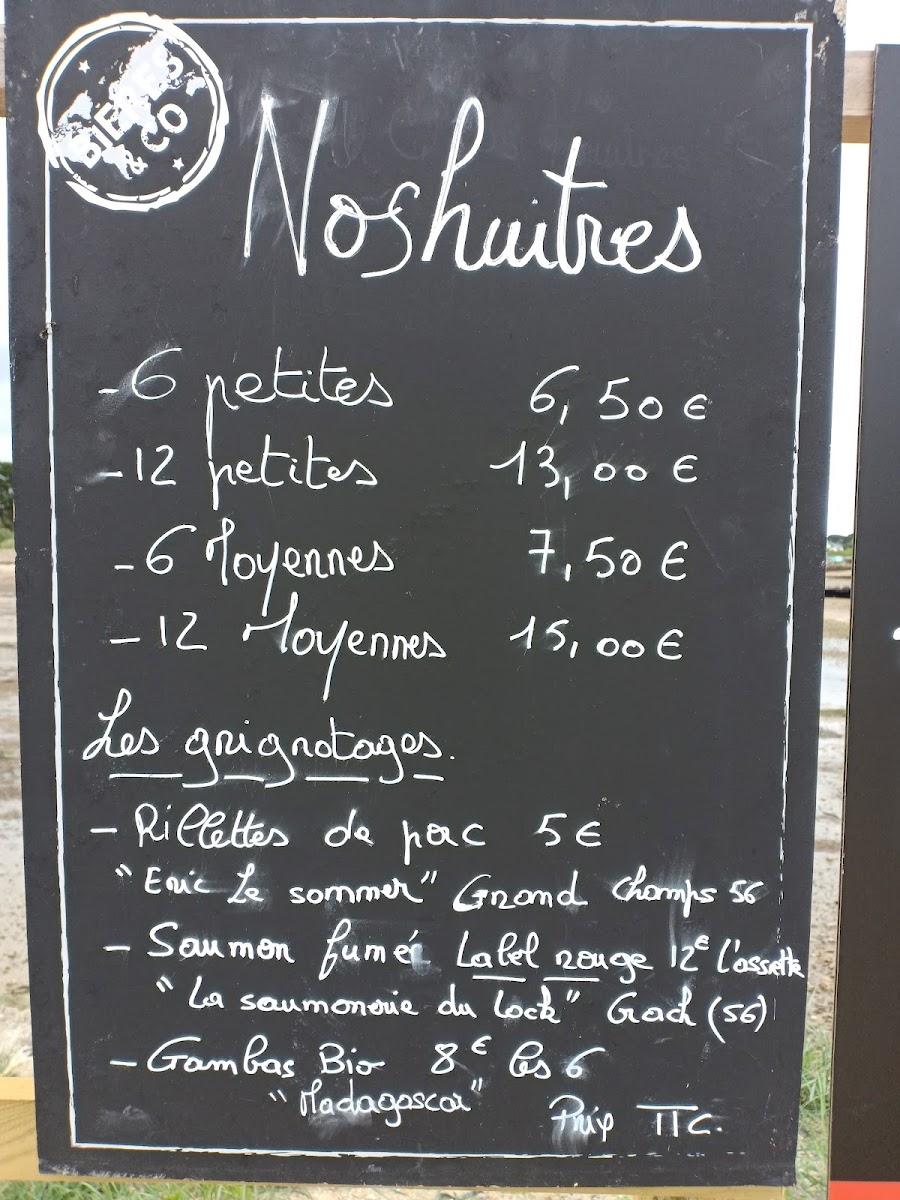 BIERES
& CO
Nos huitres
- 6 petites 6,50 €
- 12 petites 13,00 €
- 6 Moyennes 7,50 €
- 12 Moyennes 15,00 €
Les grignotages.
- Rillettes de porc 5 €
"Eric Le sommer" Grand Champs 56
- Saumon fumé Label rouge 12€ l'assiette
"La saumonerie du Lock" Crach (56)
- Gambas Bio 8€ les 6
"Madagascar"
Prix TTC.